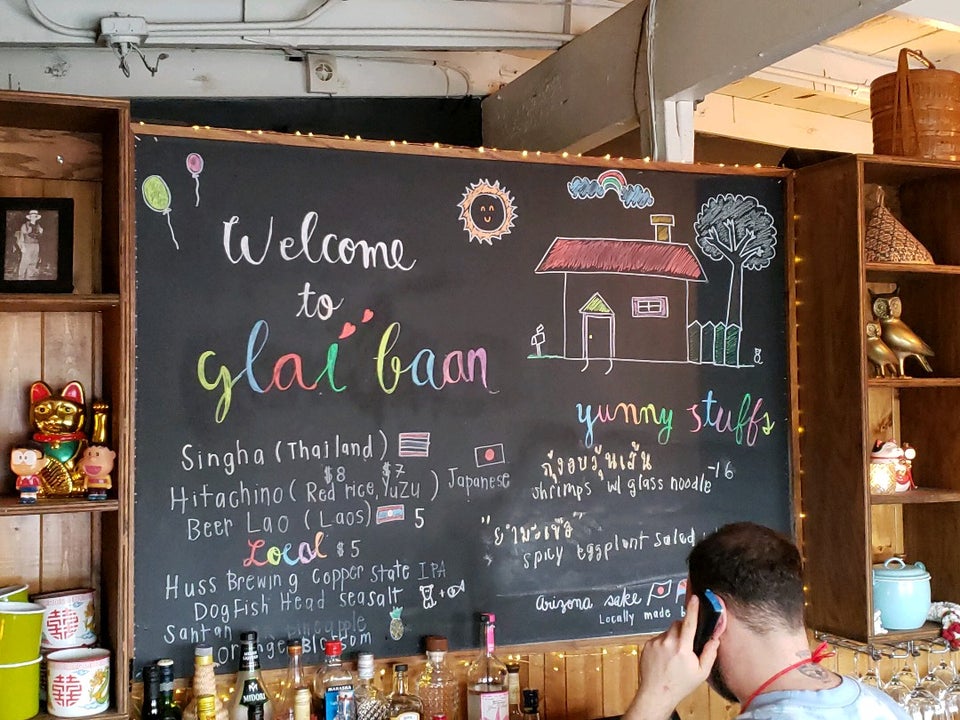 Welcome
to
glai baan
Singha (Thailand)
$8 $7
Hitachino (Red rice, YuZu) Japanese
Beer Lao (Laos) 5
Local $5
Huss Brewing Copper State IPA
DogFish Head seasalt +
Santan pineapple
Orange Blossom
yunny stuffs
กุ้งอบวุ้นเส้น
shrimps w/ glass noodle -16
"ยำมะเขือ"
spicy eggplant salad
Arizona sake
Locally made
MIDORI